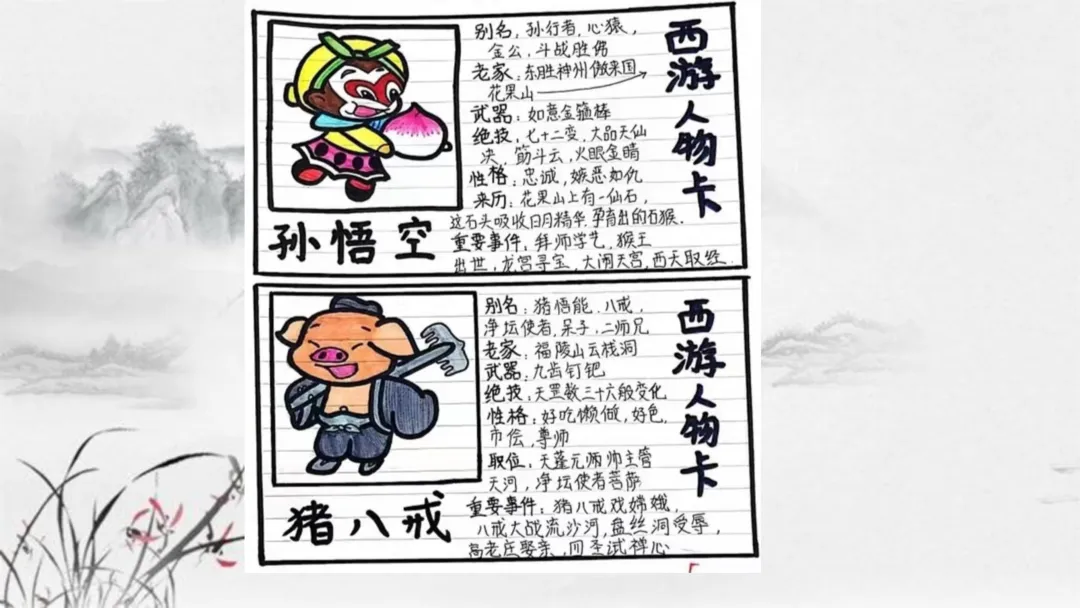 别名：孙行者，心猿，
金公，斗战胜佛
老家：东胜神州傲来国
花果山
武器：如意金箍棒
绝技：七十二变，大品天仙
决，筋斗云，火眼金睛
性格：忠诚，嫉恶如仇
来历：花果山上有一仙石，
这石头吸收日月精华，孕育出的石猴.
重要事件：拜师学艺，猴王
出世，龙宫寻宝，大闹天宫，西天取经.
孙悟空
西游人物卡
别名：猪悟能，八戒，
净坛使者，呆子，二师兄
老家：福陵山云栈洞
武器：九齿钉钯
绝技：天罡数三十六般变化
性格：好吃懒做，好色，
市侩，尊师
职位：天蓬元师帅主管
天河，净坛使者菩萨
重要事件：猪八戒戏嫦娥，
八戒大战流沙河，盘丝洞受辱，
高老庄娶亲，四圣试禅心
猪八戒
西游人物卡